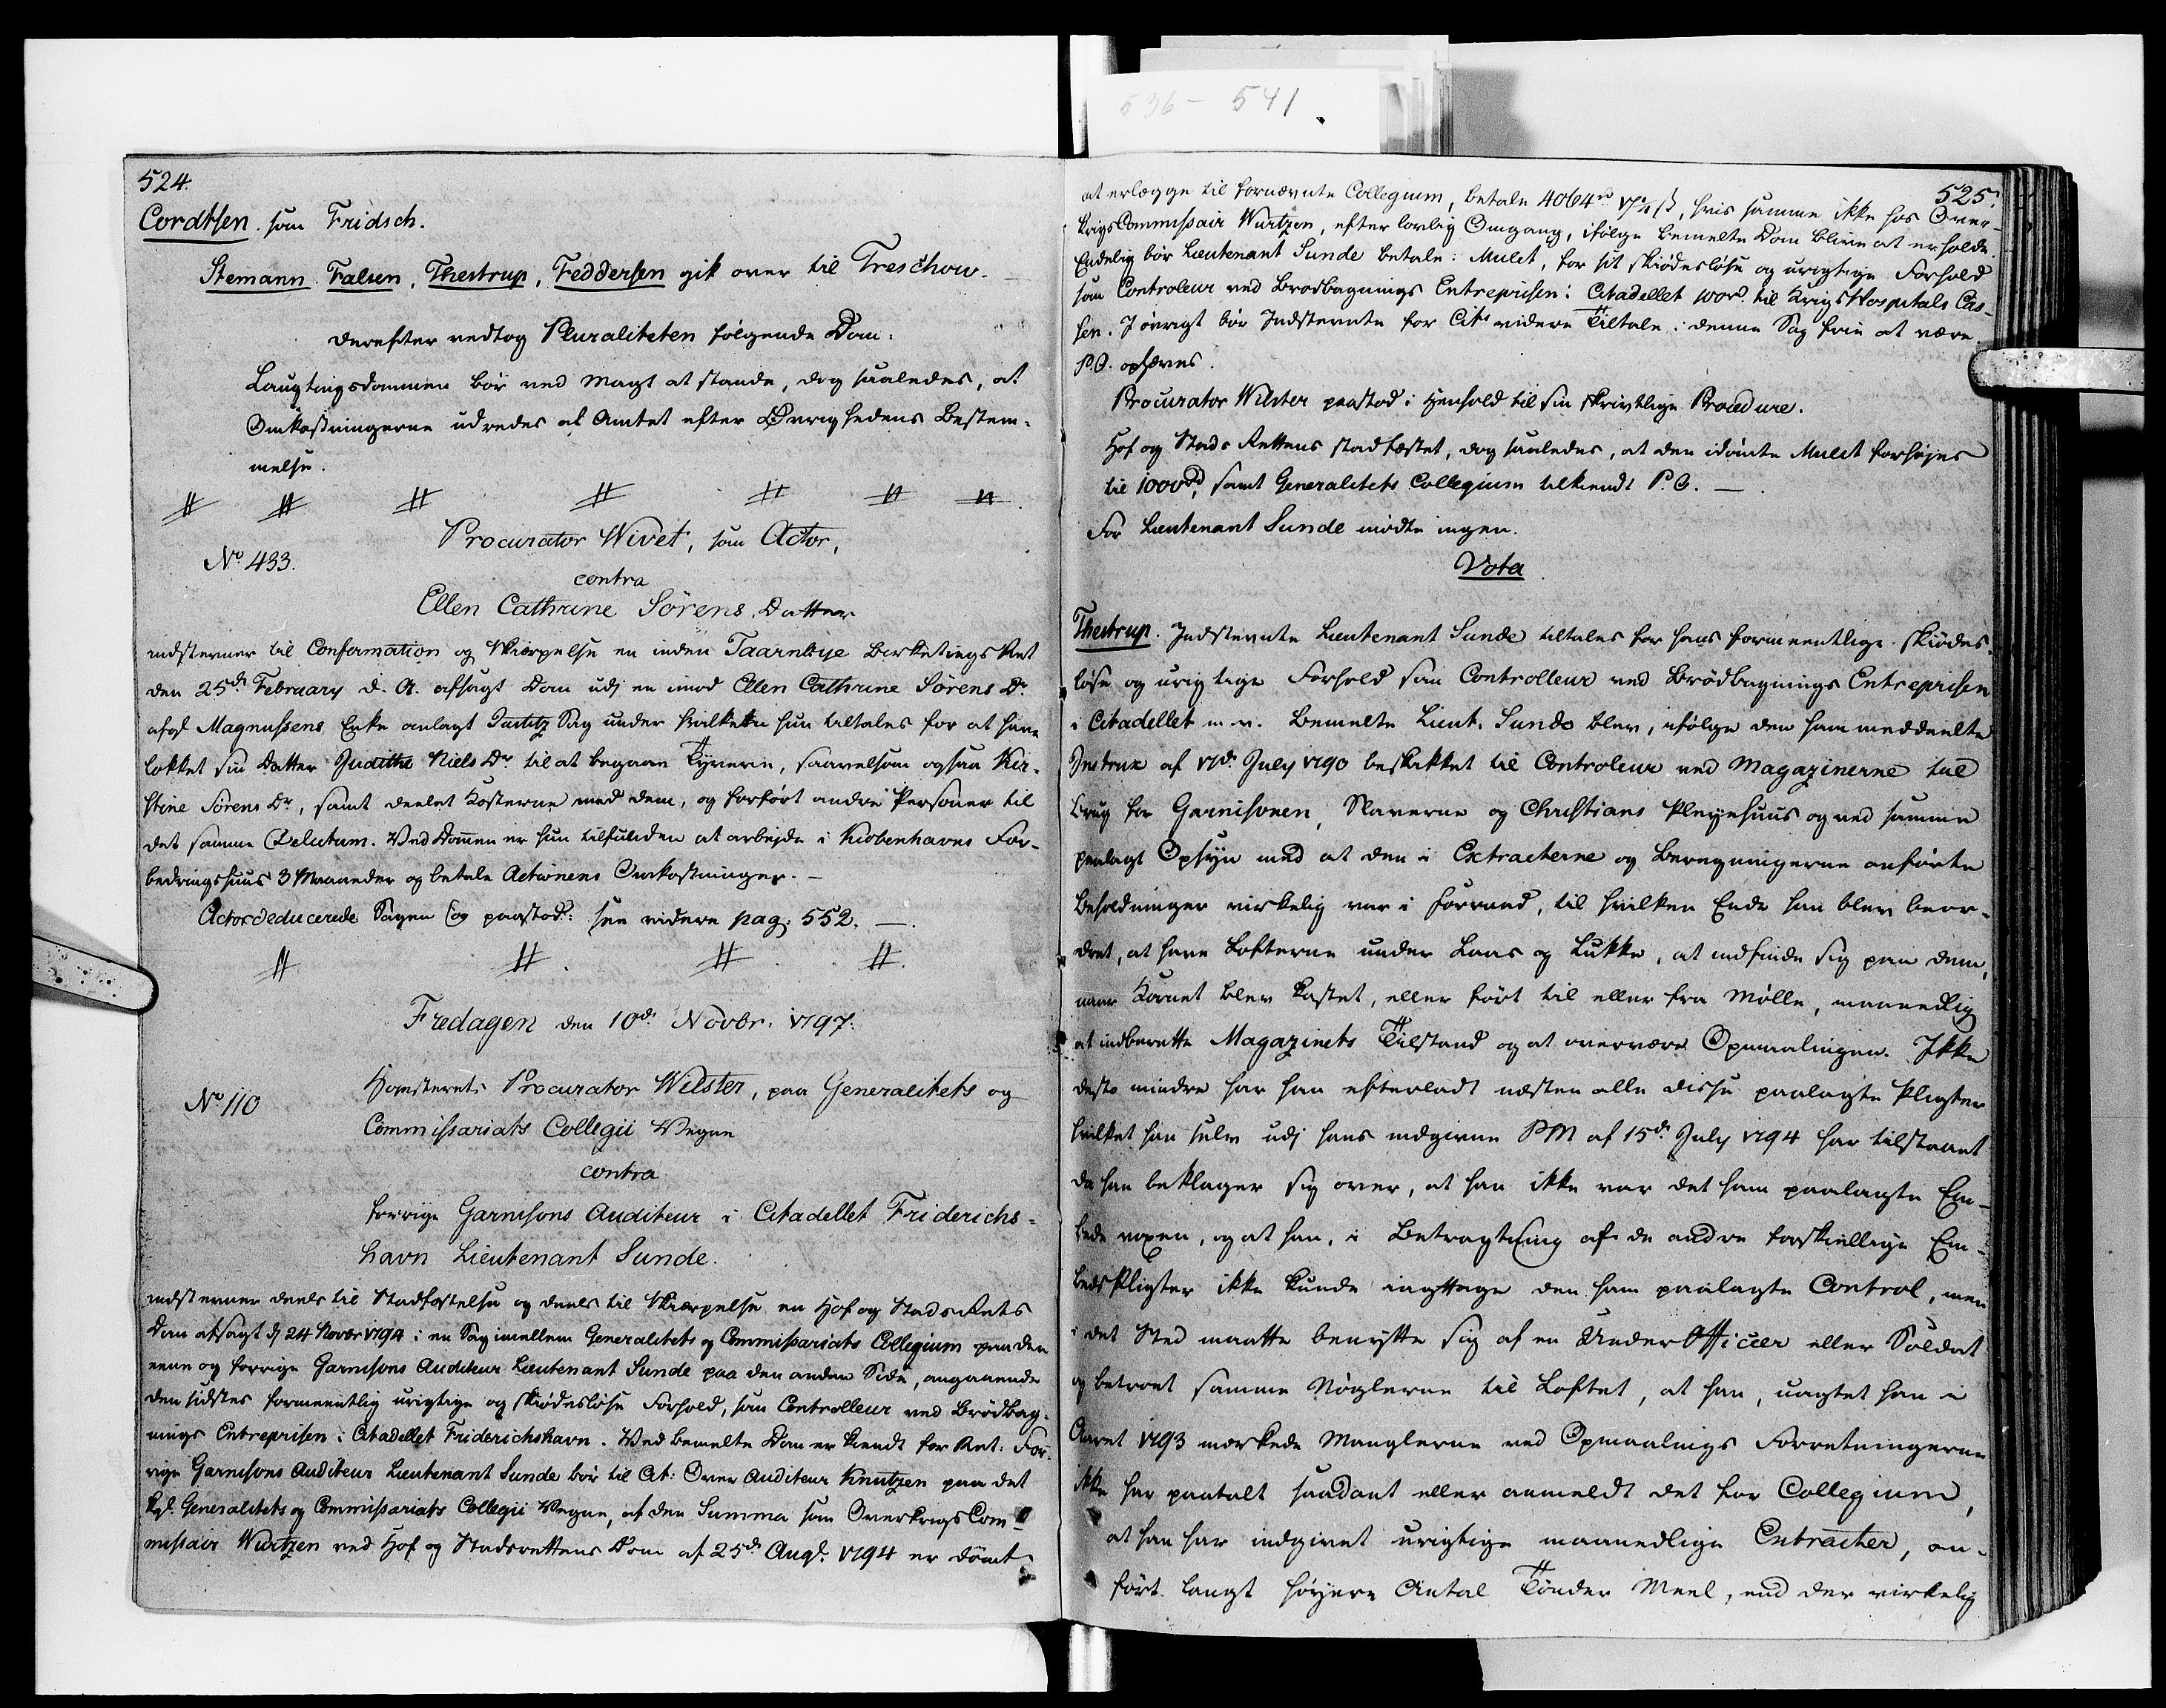 536 - 541.
524.
Cordtsen. som Fridsch.
Stemann. Falsen, Thestrup, Feddersen gik over til Treschow.
Derefter vedtog Pluraliteten følgende Dom.
Laugtingsdommen bør ved Magt at stande, dog saaledes, at
Omkostningerne udredes af Amtet efter Øvrighedens Bestem-
melse.
Procurator Wivet, som Actor,
No 433.
contra
Ellen Cathrine Sörens Datter
indstevner til Confirmation og Skiærpelse en inden Taarnbye Birketings Ret
den 25de February d. A. afsagt Dom udj en imod Ellen Cathrine Sörens Dr
afgl Magnussens Enke anlagt Justitz Sag under hvilken hun tiltales for at have
lokket sin Datter Judithe Niels Dr til at begaae Tyverie, saavelsom ogsaa Kir-
stine Sörens Dr, samt deelet Kosterne med dem, og forført andre Personer til
det samme Delictum. Ved Dommen er hun tilfunden at arbejde i Kiøbenhavns For-
bedringshuus 3 Maaneder og betale Actionens Omkostninger. —
Actor deducerede Sagen og paastod: see videre pag. 552. —
Fredagen den 10de Novbr. 1797.
No 110
Høiesterets Procurator Wilster, paa Generalitets og
Commissariats Collegii Vegne
contra
forrige Garnisons Auditeur i Citadellet Friderichs-
havn Lieutenant Sunde.
indstevner deels til Stadfæstelse og deels til Skiærpelse en Hof og Stads Rets
Dom afsagt dj 24 Novbr 1794 i en Sag imellem Generalitets og Commissariats Collegium paa den
eene og forrige Garnisons Auditeur Lieutenant Sunde paa den anden Side, angaaende
den sidstes formeentlig urigtige og skiødesløse Forhold, som Controlleur ved Brødbag-
nings Entreprisen i Citadellet Friderichshavn. Ved bemelte Dom er kiendt for Ret: For-
rige Garnisons Auditeur Lieutenant Sunde bør til Cit: Over Auditeur Knutzen paa det
Kgl. Generalitets og Commissariats Collegii Vegne, af den Summa som OverkrigsCom-
missair Wurtzen ved Hof og Stadsrettens Dom af 25de Augl. 1794 er dømt
525.
at erlægge til fornævnte Collegium, betale 4064 rd ß, hvis samme ikke hos Over-
krigsCommissair Wurtzen, efter lovlig Omgang, ifølge bemelte Dom bliver at erholde.
Endelig bør Lieutenant Sunde betale i Mulct, for sit skiødesløse og urigtige Forhold
som Controleur ved Brødbagnings Entreprisen i Citadellet 100 rd til Krigs Hospitals Cas-
sen. I øvrigt bør Indstevnte for Cits videre Tiltale i denne Sag frie at være.
P. O. ophæves.
Procurator Wilster paastod i Henhold til sin skrivtlige Procedure.
Hof og Stads Rettens stadfæstet, dog saaledes, at den idømte Mulct forhøjes
til 1000 rd, samt Generalitets Collegium tilkiendt P. O. —
For Lieutenant Sunde mødte ingen.
Vota
Thestrup. Indstevnte Lieutenant Sunde tiltales for hans formeentlige skiødes-
løse og urigtige Forhold som Controlleur ved Brødbagnings Entreprisen
i Citadellet m. v. Bemelte Lieut. Sunde blev, ifølge den ham meddeelte
Instrux af 17de July 1790 beskikket til Controleur ved Magazinerne til
Brug for Garnisonen, Slaverne og Christians Pleyehuus og ved samme
paalagt Opsyn med at den i Extracterne og Beregningerne anførte
Beholdninger virkelig var i Forraad, til hvilken Ende han blev beor-
dret, at have Lofterne under Laas og Lukke, at indfinde sig paa dem,
naar Kornet blev kastet, eller ført til eller fra Mølle, maanedlig
at indberette Magazinets Tilstand og at overvære Opmaalingen. Ikke
desto mindre har han efterladt næsten alle disse paalagte Pligter
hvilket han selv udj hans indgivne PM af 15de July 1794 har tilstaaet
da han beklager sig over, at han ikke var det ham paalagte Em-
bede voxen, og at han, i Betragtning af de andre forskiellige Em-
bedsPligter ikke kunde iagttage den ham paalagte Control, men
i det Sted maatte benytte sig af en UnderOfficeer eller Soldat
og betroet samme Nøglerne til Loftet, at han, uagtet han i
Aaret 1793 mærkede Manglerne ved Opmaalings Forretningerne
ikke har paatalt saadant eller anmeldt det for Collegium,
at han har indgivet urigtige maanedlige Extracter, an-
ført langt høyere Antal Tønder Meel, end der virkelig